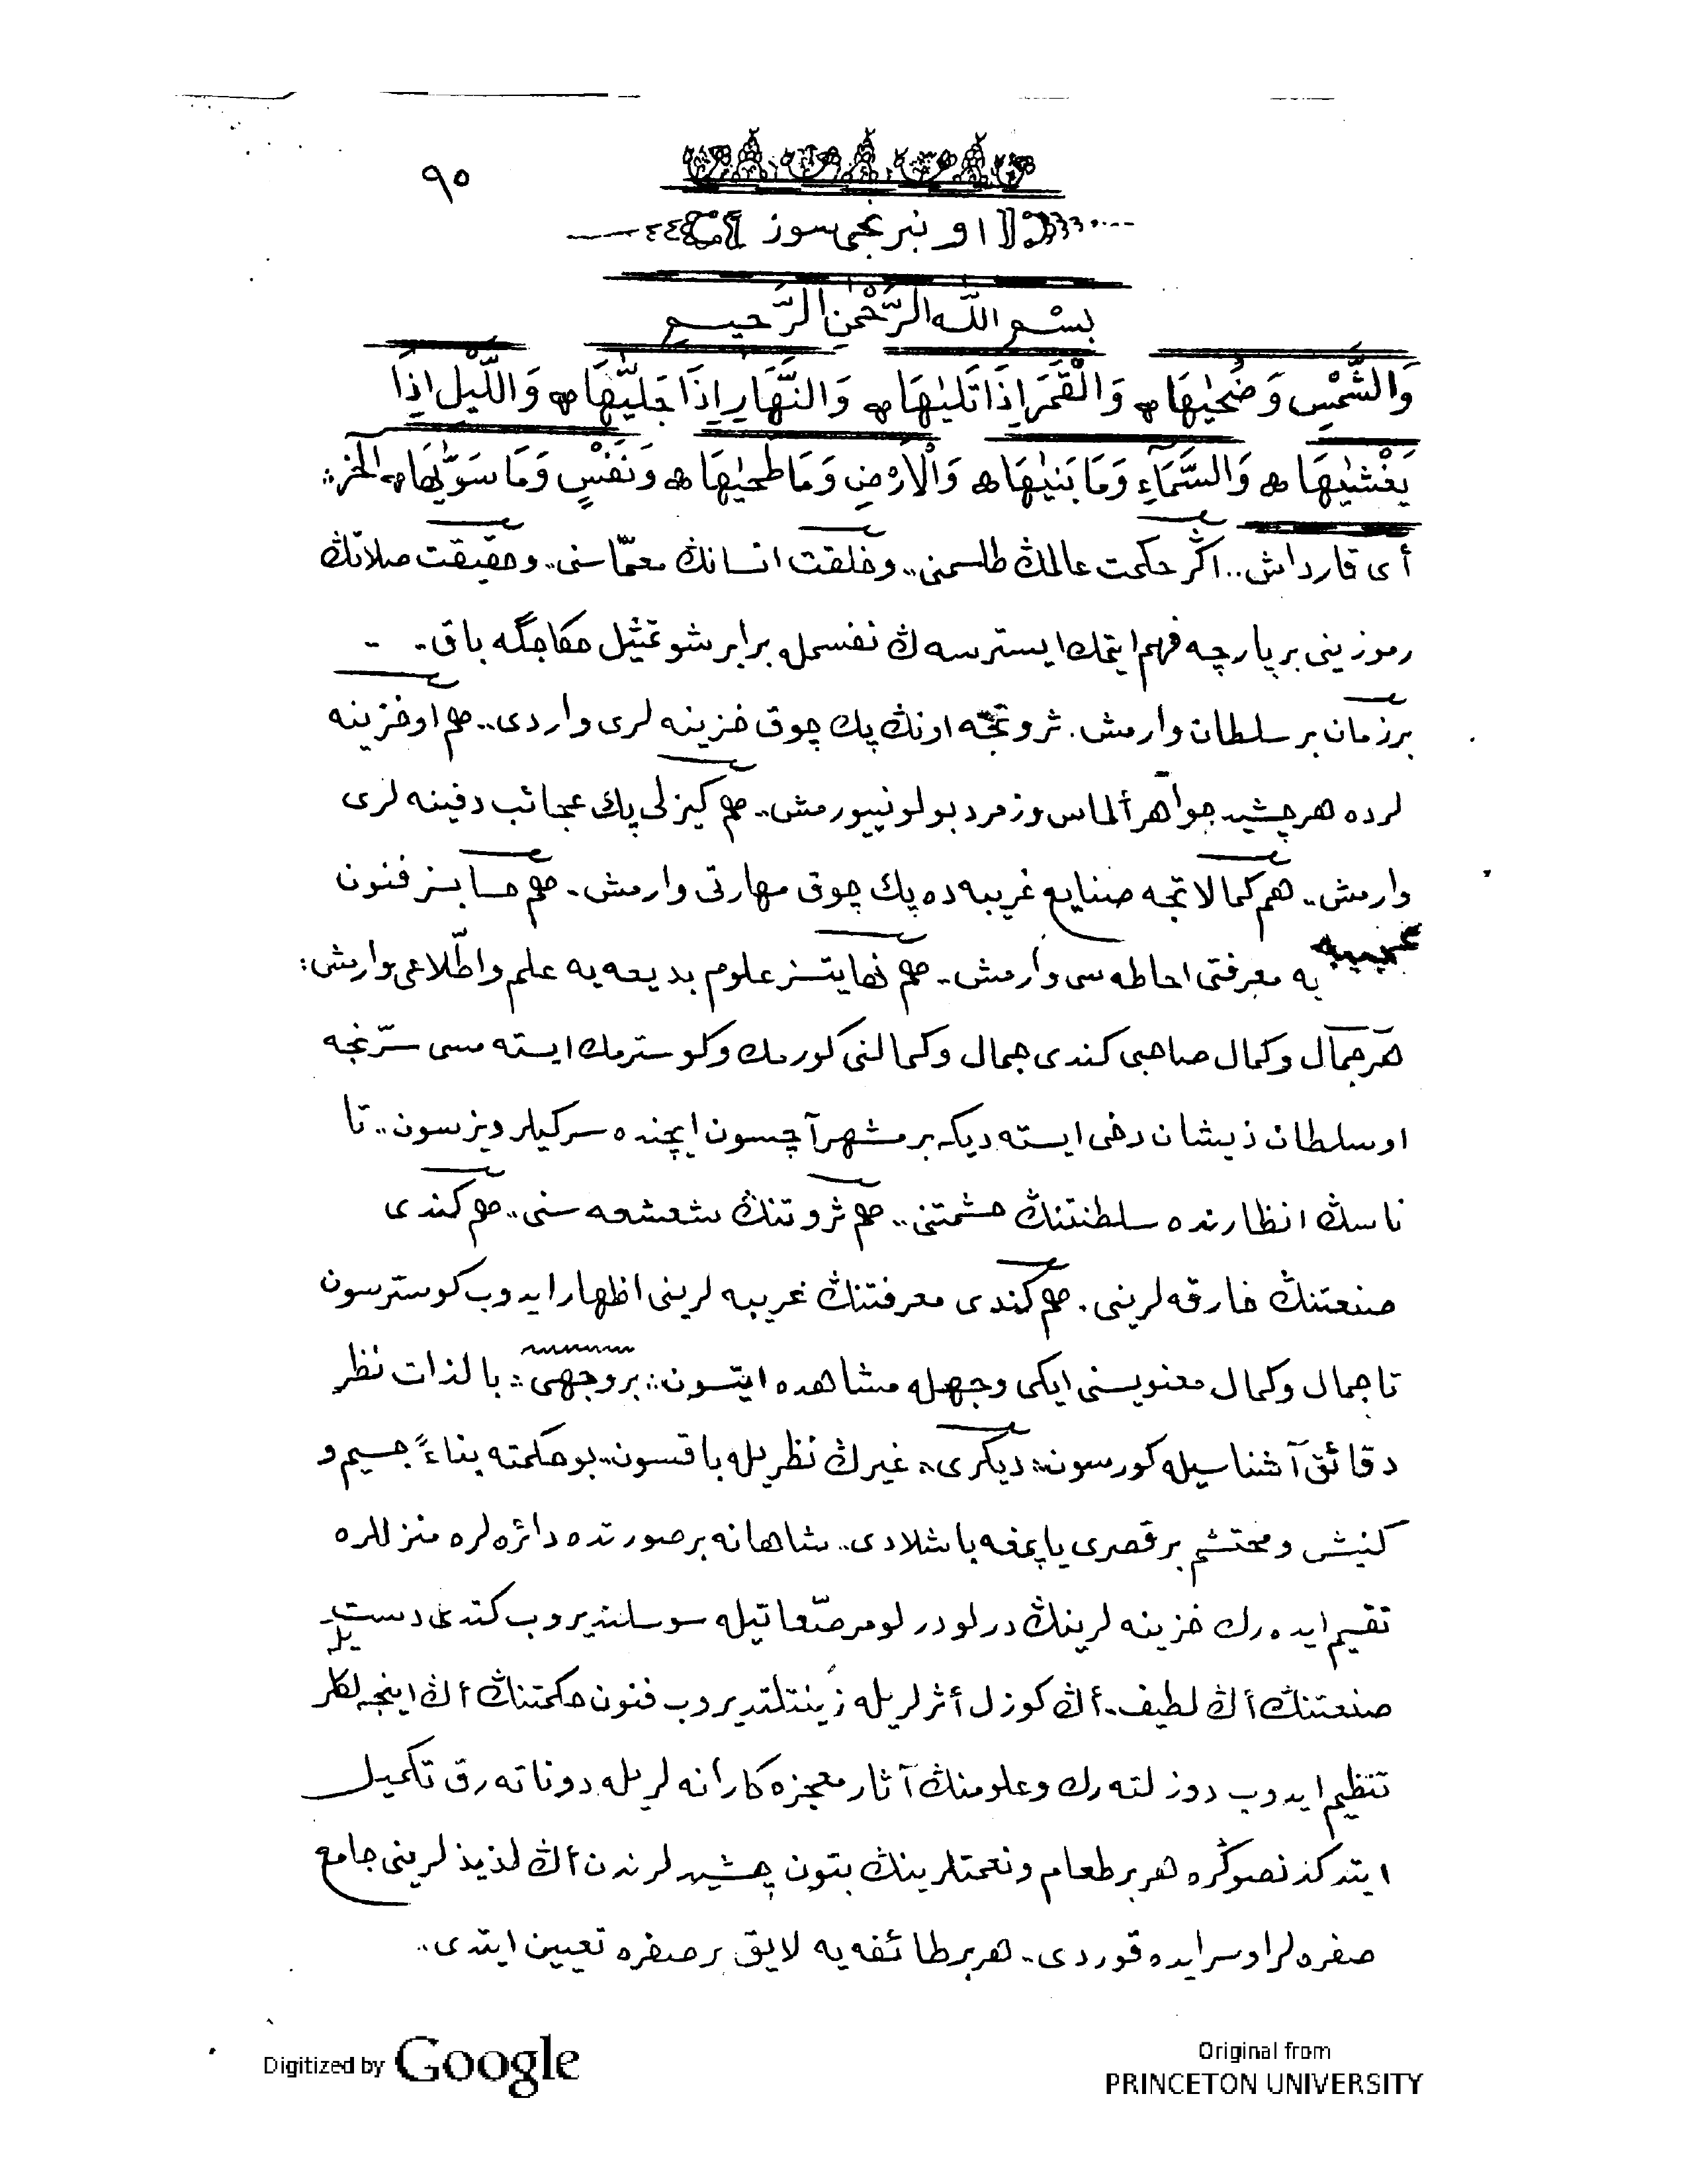 ٩٥
اون برنجی سوز
بِسْمِ اللّٰهِ الرَّحْمٰنِ الرَّحِيمِ
وَالشَّمْسِ وَضُحٰيهَا ❊ وَالْقَمَرِ اِذَا تَلٰيهَا ❊ وَالنَّهَارِ اِذَا جَلّٰيهَا ❊ وَالَّيْلِ اِذَا
يَغْشٰيهَا ❊ وَالسَّمَآءِ وَمَا بَنٰيهَا ❊ وَالْاَرْضِ وَمَا طَحٰيهَا ❊ وَنَفْسٍ وَمَا سَوّٰيهَا ❊ الخ..
أی قارداش.. اگر حكمت عالمڭ طلسمنی.. وخلقت انسانڭ معمّاسنی.. وحقیقت صلاتڭ
رموزینی بر پارچه فهم ایتمك ایسترسه ڭ نفسمله برابر شو تمثیل حكایجگه باق..
بر زمان بر سلطان وارمش. ثروتجه اونڭ پك چوق خزینه لری واردی.. هم او خزینه
لرده هر چشید جواهر ألماس وزمرد بولونییورمش.. هم كیزلی پك عجائب دفینه لری
وارمش.. هم كمالاتجه صنایع غریبه ده پك چوق مهارتی وارمش.. هم حسابسز فنون
عجیبه یه معرفتی احاطه سی وارمش.. هم نهایتسز علوم بدیعه یه علم واطّلاعی وارمش:
هر جمال وكمال صاحبی كندی جمال وكمالنی كورمك وكوسترمك ایسته مسی سرّنجه
او سلطان ذیشان دخی ایسته دیكه بر مشهر آچسون ایچنده سركیلر دیزسون.. تا
ناسڭ انظارنده سلطنتنڭ حشمتنی.. هم ثروتنڭ شعشعه سنی.. هم كندی
صنعتنڭ خارقه لرینی. هم كندی معرفتنڭ غریبه لرینی اظهار ایدوب كوسترسون
تا جمال وكمال معنویسنی ایكی وجهله مشاهده ایتسون: بر وجهی: بالذات نظر
دقائق آشناسیله كورسون: دیكری: غیرڭ نظریله باقسون.. بو حكمته بناءً جسیم و
كنیش ومحتشم بر قصری یاپمغه باشلادی.. شاهانه بر صورتده دائره لره منزللره
تقسیم ایده رك خزینه لرینڭ درلو درلو مرصّعاتیله سوسلندیروب كندی دست
صنعتنڭ أڭ لطیف.. أڭ كوزل أثرلریله زینتلندیروب فنون حكمتنڭ أڭ اینجه لكلریله
تنظیم ایدوب دوزلته رك وعلومنڭ آثار معجزه كارانه لریله دوناته رق تكمیل
ایتدكدنصوڭره هر بر طعام ونعمتلرینڭ بتون چشیدلرندن أڭ لذیذلرینی جامع
صفره لر او سرایده قوردی.. هر بر طائفه یه لایق بر صفره تعیین ایتدی..
Digitized by Google
Original from
PRINCETON UNIVERSITY